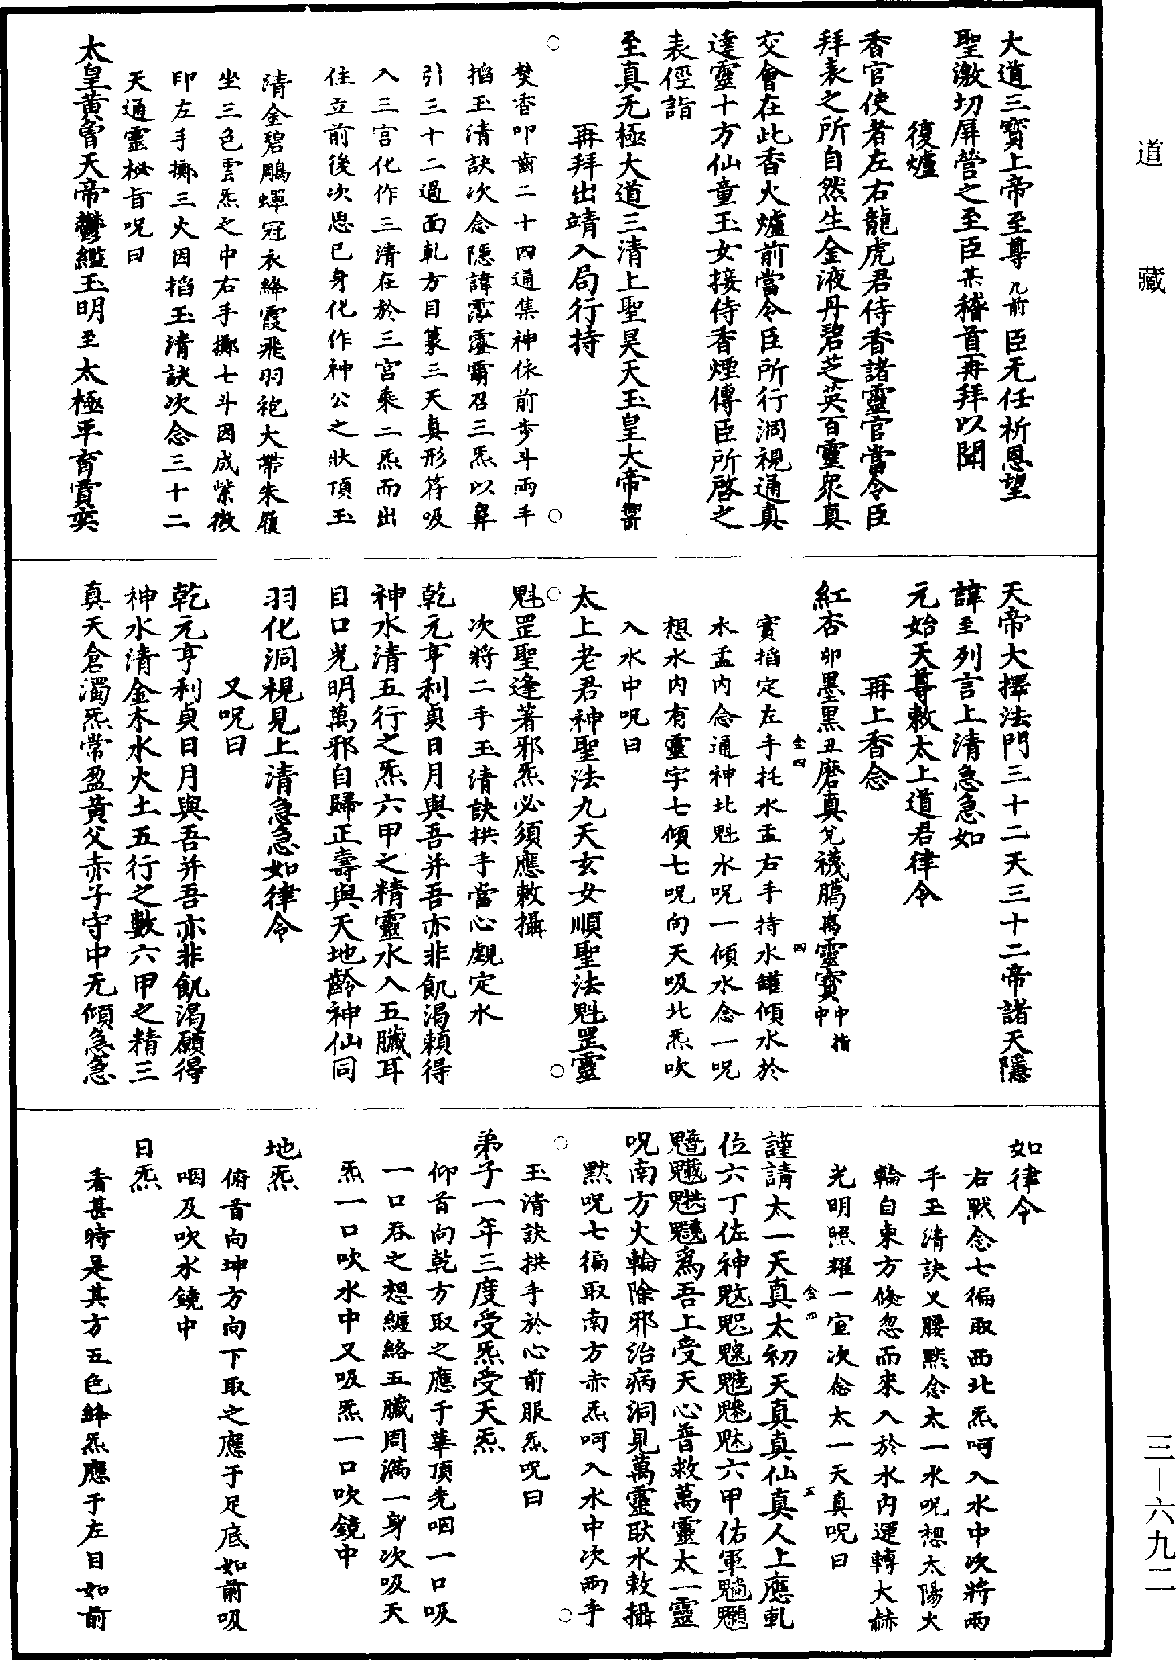 道藏
大道三寳上帝至尊几前臣无任祈恩望
聖激切屏營之至臣某稽首再拜以聞
復爐
香官使者左右龍虎君侍香諸靈官當令臣
拜表之所自然生金液丹碧芝英百靈衆真
交會在此香火爐前當令臣所行洞視通真
達靈十方仙童玉女接侍香煙傳臣所啓之
表徑詣
至真无極大道三清上聖昊天玉皇大帝
再拜出靖入局行持
焚香叩齒二十四通集神依前步斗兩手
掐玉清訣次念隱諱召三炁以鼻
引三十二過面乾方目篆三天真形符吸
入三宫化作三清在於三宫乘二炁而出
住立前後次思已身化作神公之狀頂玉
清金碧鵰蟬冠衣絳霞飛羽袍大帶朱履
坐三色雲炁之中右手擲七斗因成紫微
印左手擲三火因掐玉清訣次念三十二
天通靈秘旨呪曰
太皇黄曾天帝鬱繿玉明至太極平育賈奕
天帝大擇法門三十二天三十二帝諸天隱
諱至列言上清急急如
元始天尊敕太上道君律令
再上香念
紅杏卯墨黑丑磨真兊襪臈离靈寳中中指
寳掐定左手托水盂右手持水罐傾水於
水盂内念通神北魁水呪一傾水念一呪
想水内有靈字七傾七呪向天吸北炁吹
入水中呪曰
太上老君神聖法九天玄女順聖法魁罡靈
魁罡聖逢著邪炁必須應敕攝
次將二手玉清訣拱手當心覷定水
乾元亨利貞日月與吾并吾亦非飢渴頼得
神水清五行之炁六甲之精靈水入五臟耳
目口光明萬邪自歸正壽與天地齡神仙同
羽化洞視見上清急急如律令
又呪曰
乾元亨利貞日月與吾并吾亦非飢渴願得
神水清金木水火土五行之數六甲之精三
真天倉濁炁常盈黄父赤子守中无傾急急
如律令
右默念七徧取西北炁呵入水中次將兩
手玉清訣叉腰黙念太一水呪想太陽火
輪自東方倏忽而來入於水内運轉大赫
光明照耀一室次念太一天真呪曰
謹請太一天真太初天真真仙真人上應乾
位六丁佐神六甲佑軍
爲吾上受天心普救萬靈太一靈
呪南方火輪除邪治病洞見萬靈敺水敕攝
黙呪七徧取南方赤炁呵入水中次兩手
玉清訣拱手於心前服炁呪曰
弟子一年三度受炁受天炁
仰首向乾方取之應于華頂先咽一口吸
一口吞之想纏絡五臟周滿一身次吸天
炁一口吹水中又吸炁一口吹鏡中
地炁
俯首向坤方向下取之應于足底如前吸
咽及吹水鏡中
日炁
看甚時是其方五色絳炁應于左目如前
三—六九二